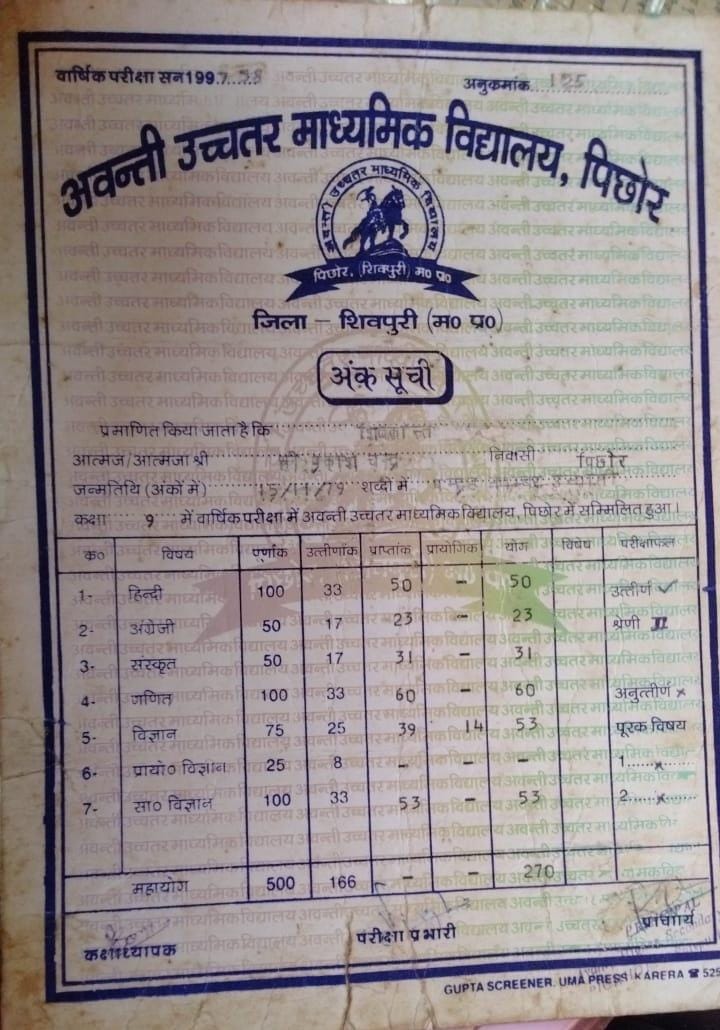 वार्षिक परीक्षा सन 1997..98
अनुक्रमांक 125
अवन्ती उच्चतर माध्यमिक विद्यालय, पिछोर
अवन्ती उच्चतर माध्यमिक विद्यालय
पिछोर, (शिवपुरी) म० प्र०
जिला - शिवपुरी (म० प्र०)
अंक सूची
प्रमाणित किया जाता है कि
आत्मज/आत्मजा श्री श्री प्रकाश चन्द्र निवासी पिछोर
जन्मतिथि (अंकों में) 15/11/79 शब्दों में
कक्षा 9 में वार्षिक परीक्षा में अवन्ती उच्चतर माध्यमिक विद्यालय, पिछोर में सम्मिलित हुआ।
क्र० विषय पूर्णांक उत्तीर्णांक प्राप्तांक प्रायोगिक योग विषेष परीक्षाफल
1- हिन्दी 100 33 50 - 50 उत्तीर्ण ✓
2- अंग्रेजी 50 17 23 - 23 श्रेणी II
3- संस्कृत 50 17 31 - 31
4- गणित 100 33 60 - 60 अनुत्तीर्ण x
5- विज्ञान 75 25 39 14 53 पूरक विषय
6- प्रायो० विज्ञान 25 8 - - - 1......x......
7- सा० विज्ञान 100 33 53 - 53 2......x......
महायोग 500 166 - - 270
कक्षाध्यापक
परीक्षा प्रभारी
प्राचार्य
PRINCIPAL
GUPTA SCREENER. UMA PRESS KARERA ☎ 525